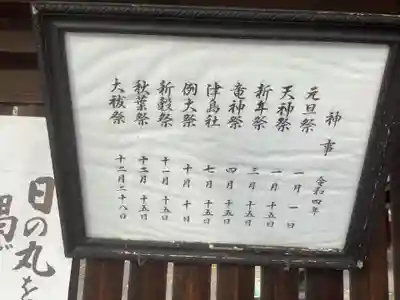 神事 令和四年
元旦祭 一月一日
天神祭 一月十五日
新年祭 三月十五日
竜神祭 四月十五日
津島社 七月十五日
例大祭 十月十日
新穀祭 十一月十五日
秋葉祭 十二月十五日
大祓祭 十二月二十八日
日の丸を